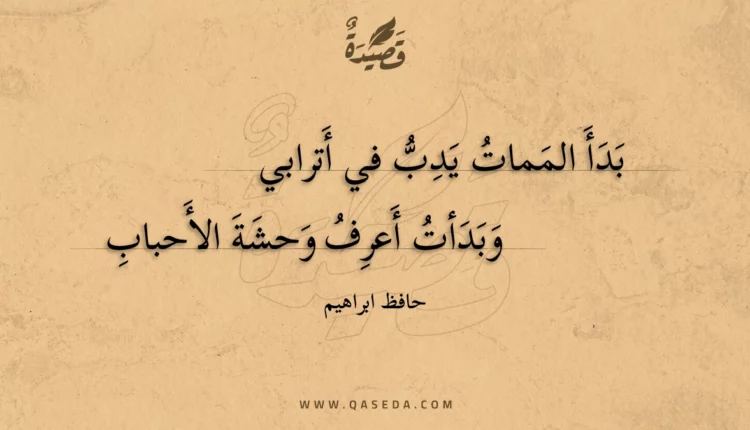 قَصِيدَةٌ
بَدَأَ المَماتُ يَدِبُّ في أَترابي
وَبَدَأتُ أَعرِفُ وَحشَةَ الأَحبابِ
حافظ ابراهيم
WWW.QASEDA.COM